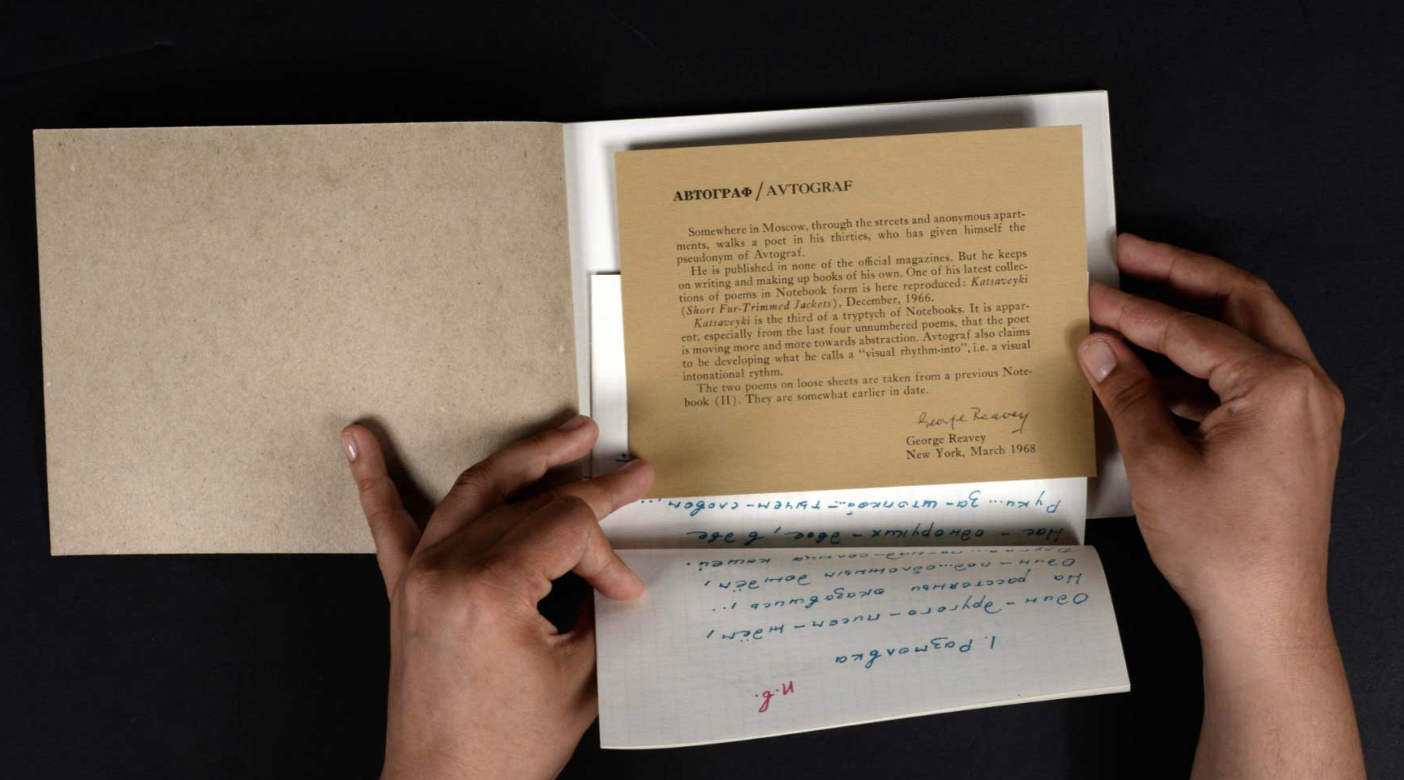 АВТОГРАФ / AVTOGRAF
Somewhere in Moscow, through the streets and anonymous apart-
ments, walks a poet in his thirties, who has given himself the
pseudonym of Avtograf.
He is published in none of the official magazines. But he keeps
on writing and making up books of his own. One of his latest collec-
tions of poems in Notebook form is here reproduced: Katsaveyki
(Short Fur-Trimmed Jackets), December, 1966.
Katsaveyki is the third of a tryptych of Notebooks. It is appar-
ent, especially from the last four unnumbered poems, that the poet
is moving more and more towards abstraction. Avtograf also claims
to be developing what he calls a "visual rhythm-into", i.e. a visual
intonational rythm.
The two poems on loose sheets are taken from a previous Note-
book (II). They are somewhat earlier in date.
George Reavey
George Reavey
New York, March 1968
И.В.
1. Размолвка
Один - другого - писем - ждём,
На расстояньи оказавшись,..
Один - под...обложным дождём,
солнца кашей.
Нас - одноруких - двое, в две
Руки... за - штопкой - тычем - словом...